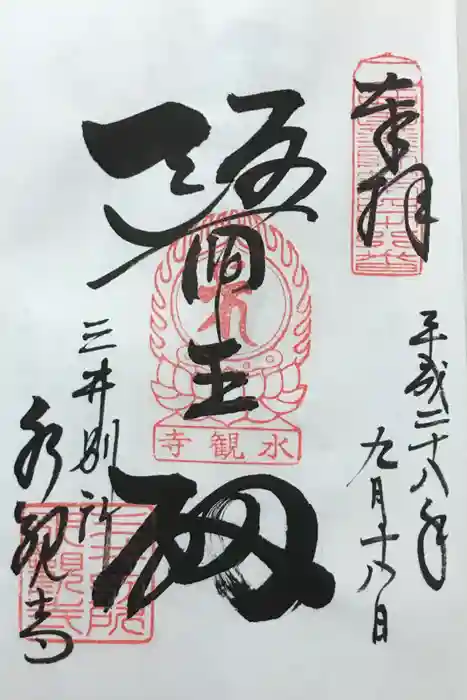 奉拝
平成二十八年
九月十八日
醫王殿
水観寺
三井別所
水観寺